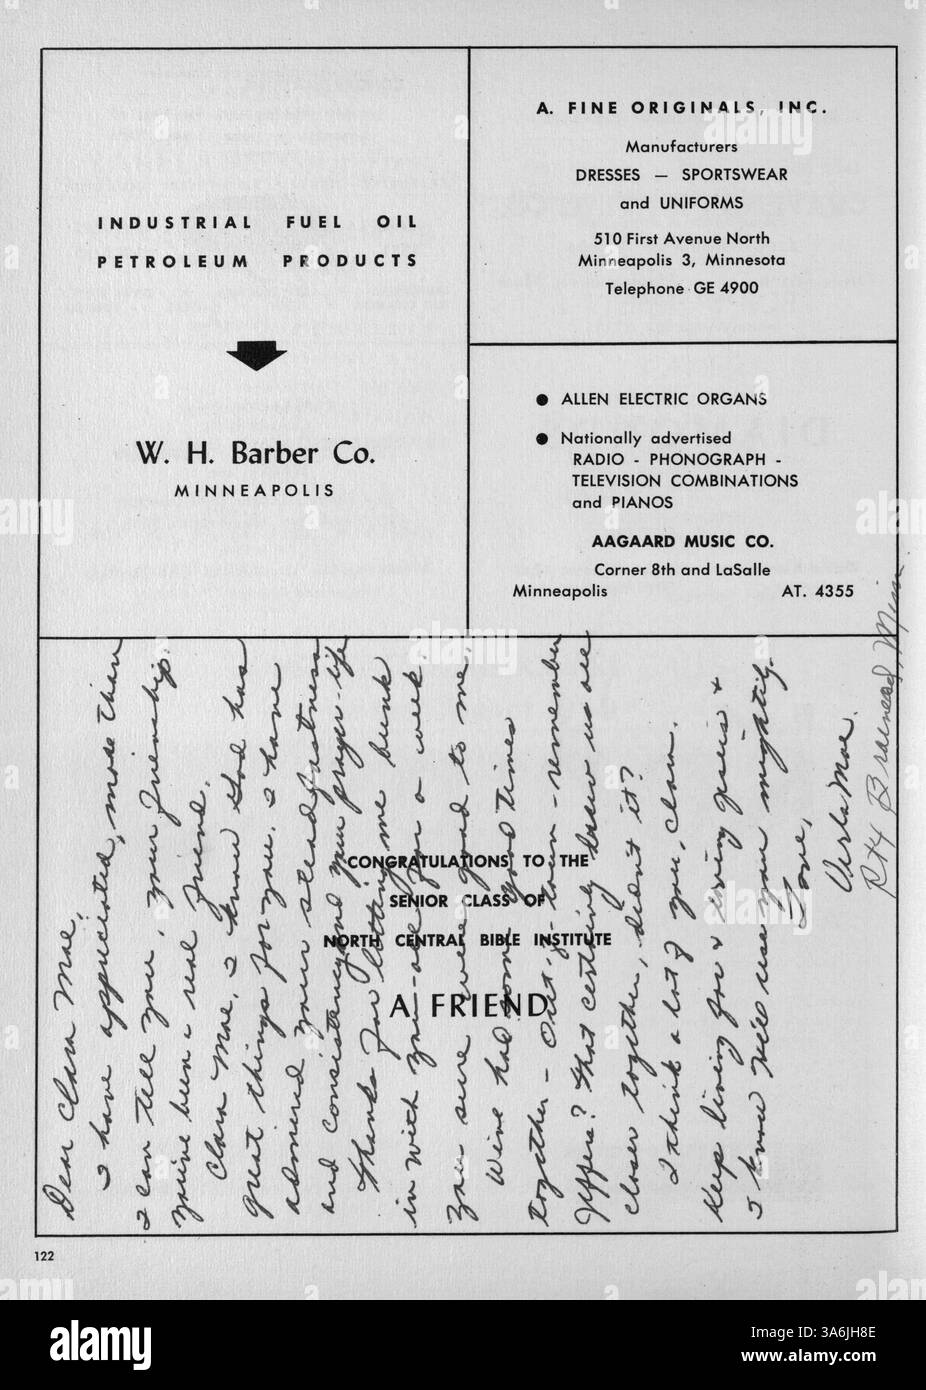 INDUSTRIAL FUEL OIL
PETROLEUM PRODUCTS
W. H. Barber Co.
MINNEAPOLIS
A. FINE ORIGINALS, INC.
Manufacturers
DRESSES — SPORTSWEAR
and UNIFORMS
510 First Avenue North
Minneapolis 3, Minnesota
Telephone GE 4900
● ALLEN ELECTRIC ORGANS
● Nationally advertised
RADIO - PHONOGRAPH -
TELEVISION COMBINATIONS
and PIANOS
AAGAARD MUSIC CO.
Corner 8th and LaSalle
Minneapolis AT. 4355
CONGRATULATIONS TO THE
SENIOR CLASS OF
NORTH CENTRAL BIBLE INSTITUTE
A FRIEND
Dear Clara Mae,
I have appreciated, more than
I can tell you, your friendship.
You've been a real friend.
Clara Mae, I know God has
great things for you. I have
admired your steadfastness
and consistency and your prayer-life
Thanks for letting me bunk
in with you-all for a week.
You sure were good to me.
We've had some good times
together - Out-of-town - remember
? That certainly drew us all
closer together, didn't it?
I think a lot of you, Clara.
Keep living for & loving Jesus &
I know He'll use you mightily.
Love,
Verla Mae.
Rt 4 Brainerd, Minn
122
alamy
Image ID: 3A6JH8E
www.alamy.com